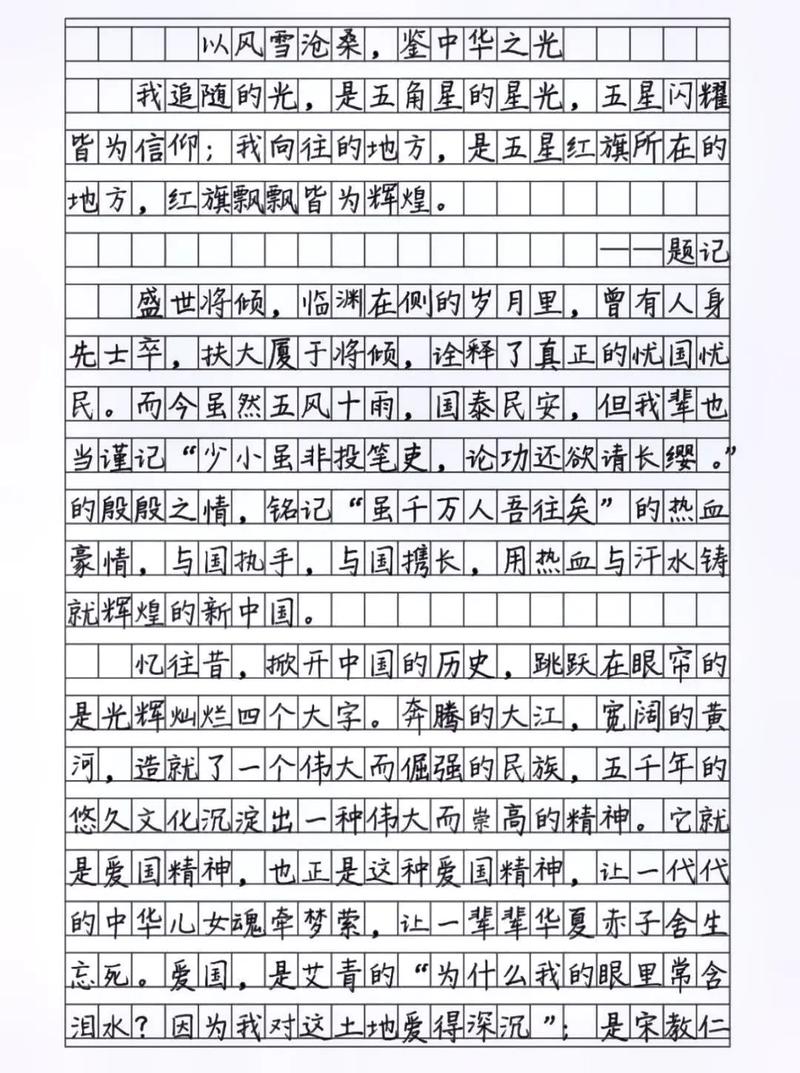 以风雪沧桑，鉴中华之光
我追随的光，是五角星的星光，五星闪耀
皆为信仰；我向往的地方，是五星红旗所在的
地方，红旗飘飘皆为辉煌。
——题记
盛世将倾，临渊在侧的岁月里，曾有人身
先士卒，扶大厦于将倾，诠释了真正的忧国忧
民。而今虽然五风十雨，国泰民安，但我辈也
当谨记“少小虽非投笔吏，论功还欲请长缨。”
的殷殷之情，铭记“虽千万人吾往矣”的热血
豪情，与国执手，与国携长，用热血与汗水铸
就辉煌的新中国。
忆往昔，掀开中国的历史，跳跃在眼帘的
是光辉灿烂四个大字。奔腾的大江，宽阔的黄
河，造就了一个伟大而倔强的民族，五千年的
悠久文化沉淀出一种伟大而崇高的精神。它就
是爱国精神，也正是这种爱国精神，让一代代
的中华儿女魂牵梦萦，让一辈辈华夏赤子舍生
忘死。爱国，是艾青的“为什么我的眼里常含
泪水？因为我对这土地爱得深沉”；是宋教仁